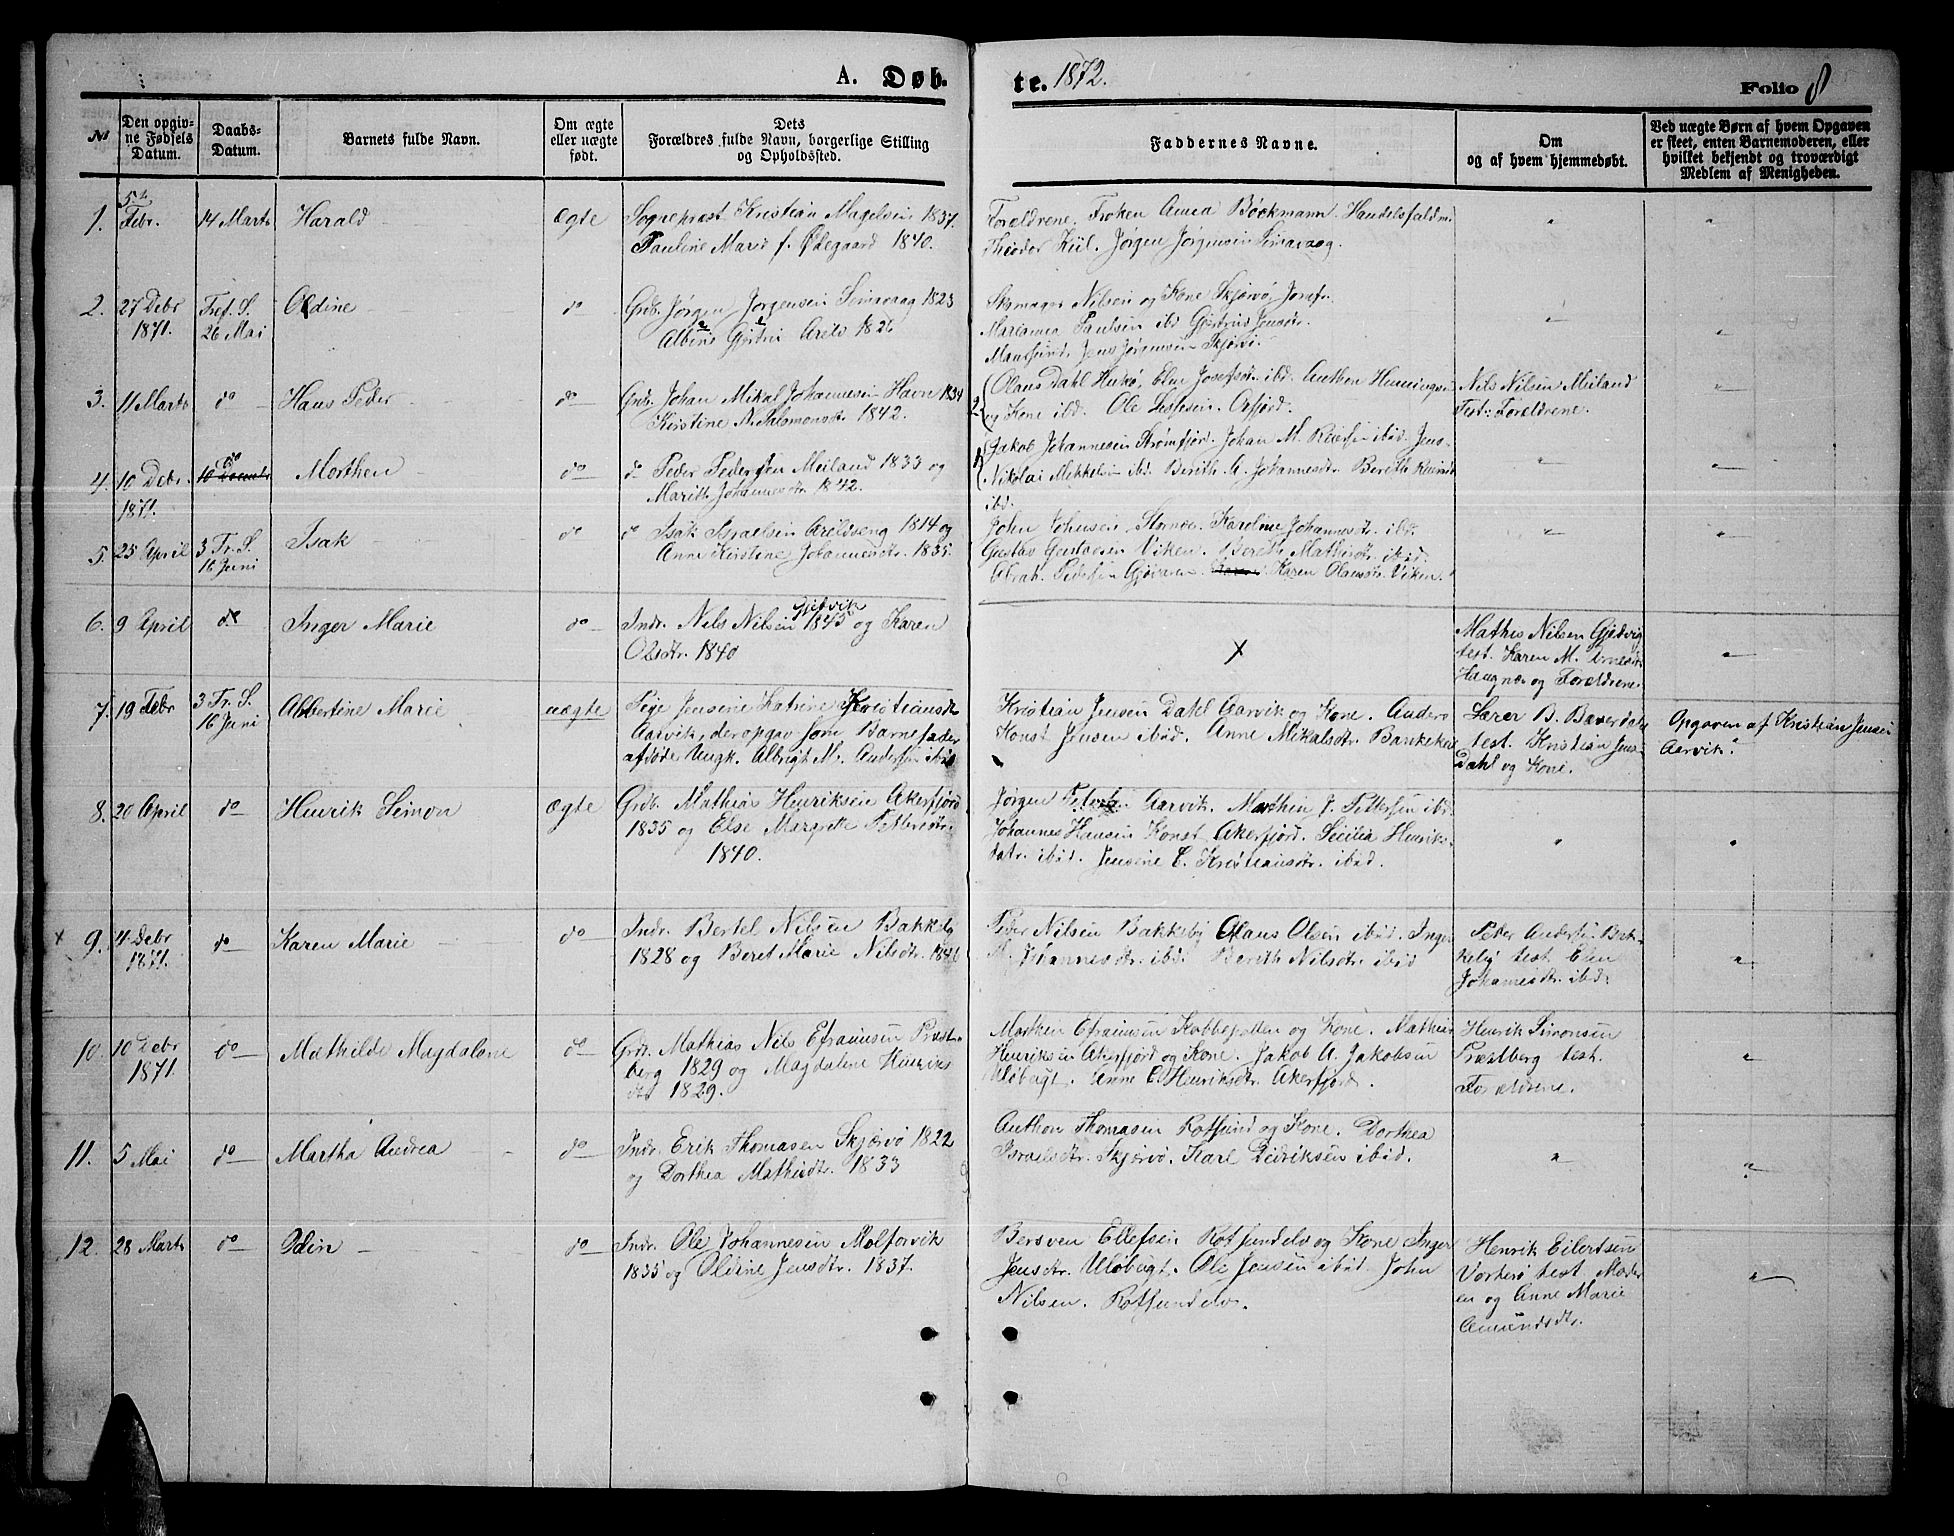 A. Døb-
te. 1872.
Folio 8
No
Den opgiv-
ne Fødsels
Datum.
Daabs-
Datum.
Barnets fulde Navn.
Om ægte
eller uægte
født.
Dets
Forældres fulde Navn, borgerlige Stilling
og Opholdssted.
Faddernes Navne.
Om
og af hvem hjemmedøbt.
Ved uægte Børn af hvem Opgaven
er skeet, enten Barnemoderen, eller
hvilket bekjendt og troværdigt
Medlem af Menigheden.
1. 5te Febr. 14 Marts Harald ægte
Sogneprest Kristian Magelsen 1837.
Pauline Marie f. Ødegaard 1840.
Foreldrene. Frøken Anna Bøckmann. Handelsfuldm.
Theodor Kiil. Jørgen Jørgensen Simavaag.
2. 27 Debr 1871. Tref. S. 26 Mai Oldine do
Grdb. Jørgen Jørgensen Simavaag 1823
Albine Gjertri Arels 1826
Skomager Nilsen og Kone Skjervø, Josefn.
Marianna Paulsen ibd Gjertrud Jensdtr.
Jens Jørgensen Skjervø.
3. 11 Marts do Hans Peder do
Grdb. Johan Mikal Johannesen Havn 1834
Kristine N. Salomonsdtr 1842.
2. Olaus Dahl Hukø, Elen Josefsdtr. ibd. Anthon Henningsen
og Kone ibd. Ole Oxfjord.
Nils Nilsen Meiland
Test: Foreldrene.
4. 10 Debr. 1871. do Morthen do
do Peder Pedersen Meiland 1833 og
Marith Johannesdtr. 1842.
1 Jakob Johannesen Strømfjord. Johan M. ibid. Jens
Nikolai Mikkelsen ibd Berith M. Johannesdtr. Berith
ibd.
5. 25 April 3 Tr. S. 16 Juni Isak do
do Isak Israelsen 1814 og
Anne Kristine Johannesdtr. 1835.
John Johnsen Karoline Johannesdtr. ibd.
Gustav Gustavsen Viken. Berith Mathisdtr. ibid.
Abrah. Pedersen Karen Olausdtr. Viken.
6. 9 April do Inger Marie do
Indr. Nils Nilsen Gjødvik 1845 og Karen
Olsdtr. 1840
x
Mathis Nilsen Gjødvig
test. Karen M.
Haugnæs og Foreldrene
7. 19 Febr 3 Tr. S. 16 Juni Albertine Marie uægte
Pige Jensine Katrine Kristiansdtr
Aarvik, der opgav som Barnefader
afdøde Ungk. Albrigt M. Andersen ibid
Kristian Jensen Dahl Aarvik og Kone. Anders
Konst Jensen ibid. Anne Mikalsdtr.
Lærer B.
test. Kristian Jens.
Dahl og Kone.
Opgaven af Kristian Jensen
Aarvik.
8. 20 April do Henrik Simon ægte
Grdb. Mathias Henriksen Akerfjord
1835 og Else Margrethe Pettersdtr.
1840.
Jørgen Aarvik. Morthen J. Pettersen ibd
Johannes Hansen Konst Akerfjord. Sicilia Henriks-
datr. ibid. Jensine C. Kristiansdtr. ibid.
x 9. 4 Debr 1871. do Karen Marie do
Indr. Bertel Nilsen Bakkeby
1828 og Beret Marie Nilsdtr. 1846
Peder Nilsen Bakkeby Olaus Olsen ibid. Inger
M. Johannesdtr. ibid. Berith Nilsdtr. ibid
Peder Andersen Bak-
keby test Elen
Johannesdtr. ibid.
10. 10 Debr 1871. do Mathilde Magdalene do
Grdr. Mathias Nils Efraimsen Præst-
berg 1829 og Magdalene Henriks
dtr 1829.
Morthen Efraimsen Kobbepotten og Kone. Mathias
Henriksen Akerfjord og Kone. Jakob A. Jakobsen
Uløbugt. Anne C. Henriksdtr. Akerfjord.
Henrik Simonsen
Præstberg test.
Forældrene.
11. 5 Mai do Martha Andrea do
Indr. Erik Thomasen Skjervø 1822
og Dorthea Mathisdtr. 1833
Anthon Thomasen Rotsund og Kone. Dorthea
Israelsdtr. Skjervø. Karl Didriksen ibid.
12. 28 Marts do Odin do
Indr. Ole Johannesen Molforvik
1835 og Oldine Jensdtr. 1837.
Bersven Ellefsen Rotsundelv og Kone Inger
Jensdtr. Uløbugt. Ole Jensen ibid. John
Nilsen. Rotsundelv.
Henrik Eilertsen
Vorterø test. Moder
en og Anne Marie
Amundsdtr.